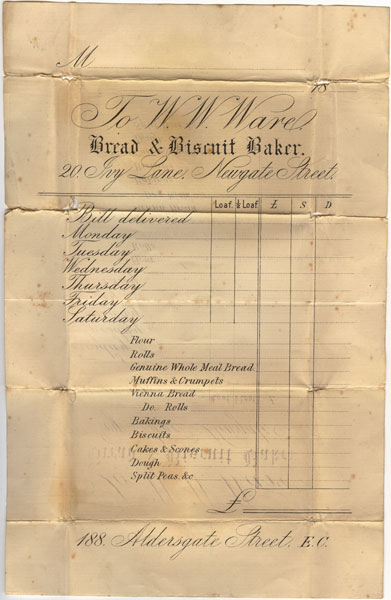 M
18
To W. W. Ware.
Bread & Biscuit Baker.
20. Ivy Lane, Newgate Street.
Loaf. ½ Loaf £ S D
Bill delivered
Monday
Tuesday
Wednesday
Thursday
Friday
Saturday
Flour
Rolls
Genuine Whole Meal Bread.
Muffins & Crumpets
Vienna Bread
Do Rolls
Bakings
Biscuits
Cakes & Scones
Dough
Split Peas. &c
£
188. Aldersgate Street. E.C.